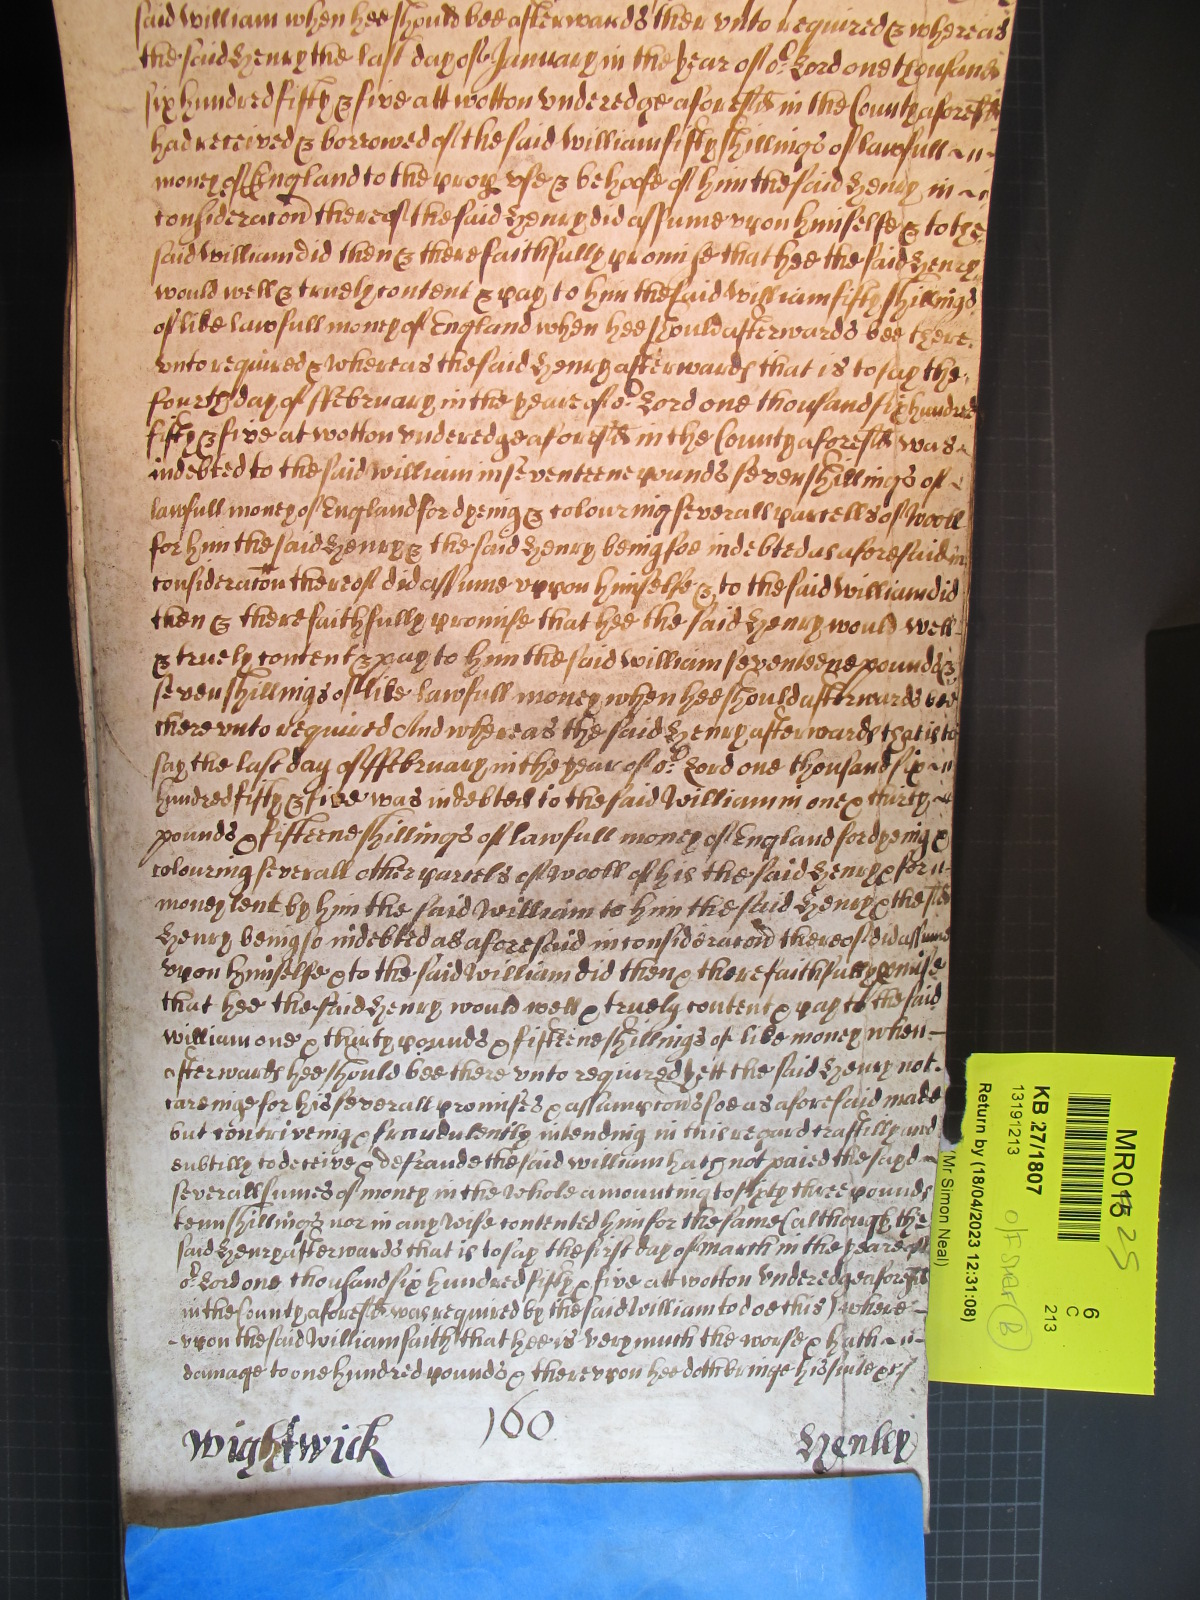 said William when hee should bee afterwards ther vnto required & whereas
the said Henry the last day of January in the year of or Lord one thousand
six hundred fifty & five att wotton vnderedge aforesd in the County aforesd
had received & borrowed of the said William fifty shillings of lawfull
money of England to the prop vse & behoofe of him the said Henry in
consideracon thereof the said Henry did assume vpon himselfe & to the
said William did then & there faithfully promise that hee the said Henry
would well & truely content & pay to him the said William fifty shillings
of like lawfull money of England when hee should afterwards bee there
vnto required & whereas the said Henry afterwards that is to say the
fourth day of ffebruary in the yeare of or Lord one thousand six hundred
fifty & five at wotton vnderedge aforesd in the County aforesd was
indebted to the said William in seventeene pounds seven shillings of
lawfull money of England for dyeing & colouring severall parcells of wooll
for him the said Henry & the said Henry being soe indebted as aforesaid in
consideracon thereof did assume vppon himselfe & to the said William did
then & there faithfully promise that hee the said Henry would well
& truely content & pay to him the said William seventeene pounds &
seven shillings of like lawfull money when hee should afterwards bee
there vnto required And whereas the said Henry afterwards that is to
say the last day of ffebruary in the year of or Lord one thousand six
hundred fifty & five was indebted to the said William in one & thirty
pounds & fifteene shillings of lawfull money of England for dyeing &
colouring severall other parcels of wooll of his the said Henry & for
money lent by him the said William to him the said Henry & the sd
Henry being so indebted as aforesaid in consideracon thereof did assume
vpon himselfe & to the said William did then & there faithfully pmise
that hee the said Henry would well & truely content & pay to the said
William one & thirty pounds & fifteene shillings of like money when
afterwards hee should bee there vnto required yett the said Henry not
careinge for his severall promises & assumpcons soe as aforesaid made
but contriveing & fraudulently intending in this regard craftilly and
subtilly to deceive & defraude the said William hath not paied the sayd
severall sumes of money in the whole amounting to sixty three pounds
tenn shillings nor in any wise contented him for the same (although the
said Henry afterwards that is to say the first day of march in the yeare of
or Lord one thousand six hundred fifty & five att wotton vnderedge aforesd
in the County aforesd was required by the said William to doe this) where
vpon the said William saith that hee is very much the worse & hath
damage to one hundred pounds & therevpon hee doth bringe his suite &c
Wightwick 160 Henley
MR01 25
6
C
213
KB 27/1807
13191213
Return by (18/04/2023 12:31:08)
(Mr Simon Neal)